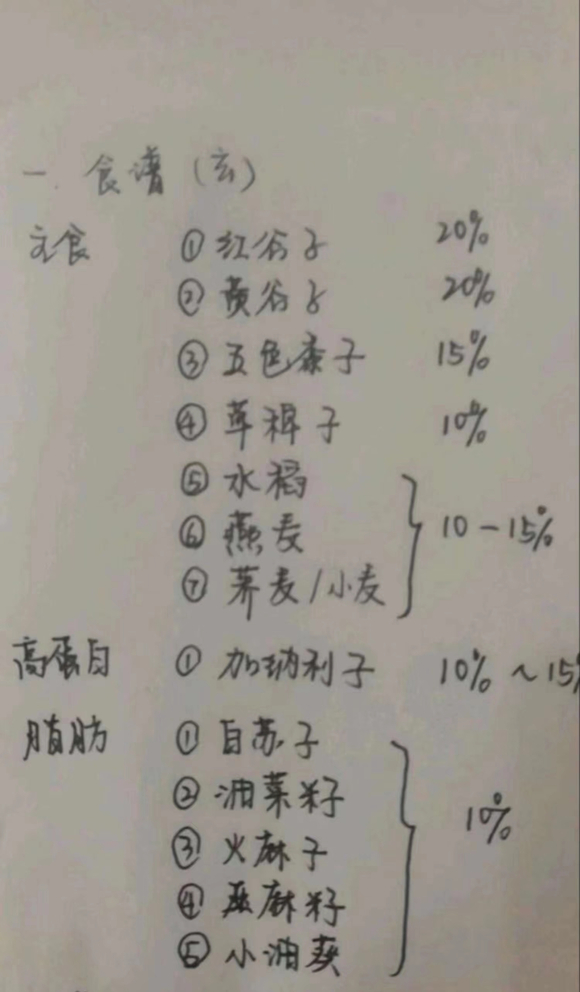 一. 食谱（玄）
主食 ① 红谷子 20%
② 黄谷子 20%
③ 五色黍子 15%
④ 草稗子 10%
⑤ 水稻
⑥ 燕麦 10-15%
⑦ 荞麦/小麦
高蛋白 ① 加纳利子 10%~15%
脂肪 ① 白苏子
② 油菜籽
③ 火麻子 10%
④ 亚麻籽
⑤ 小油葵